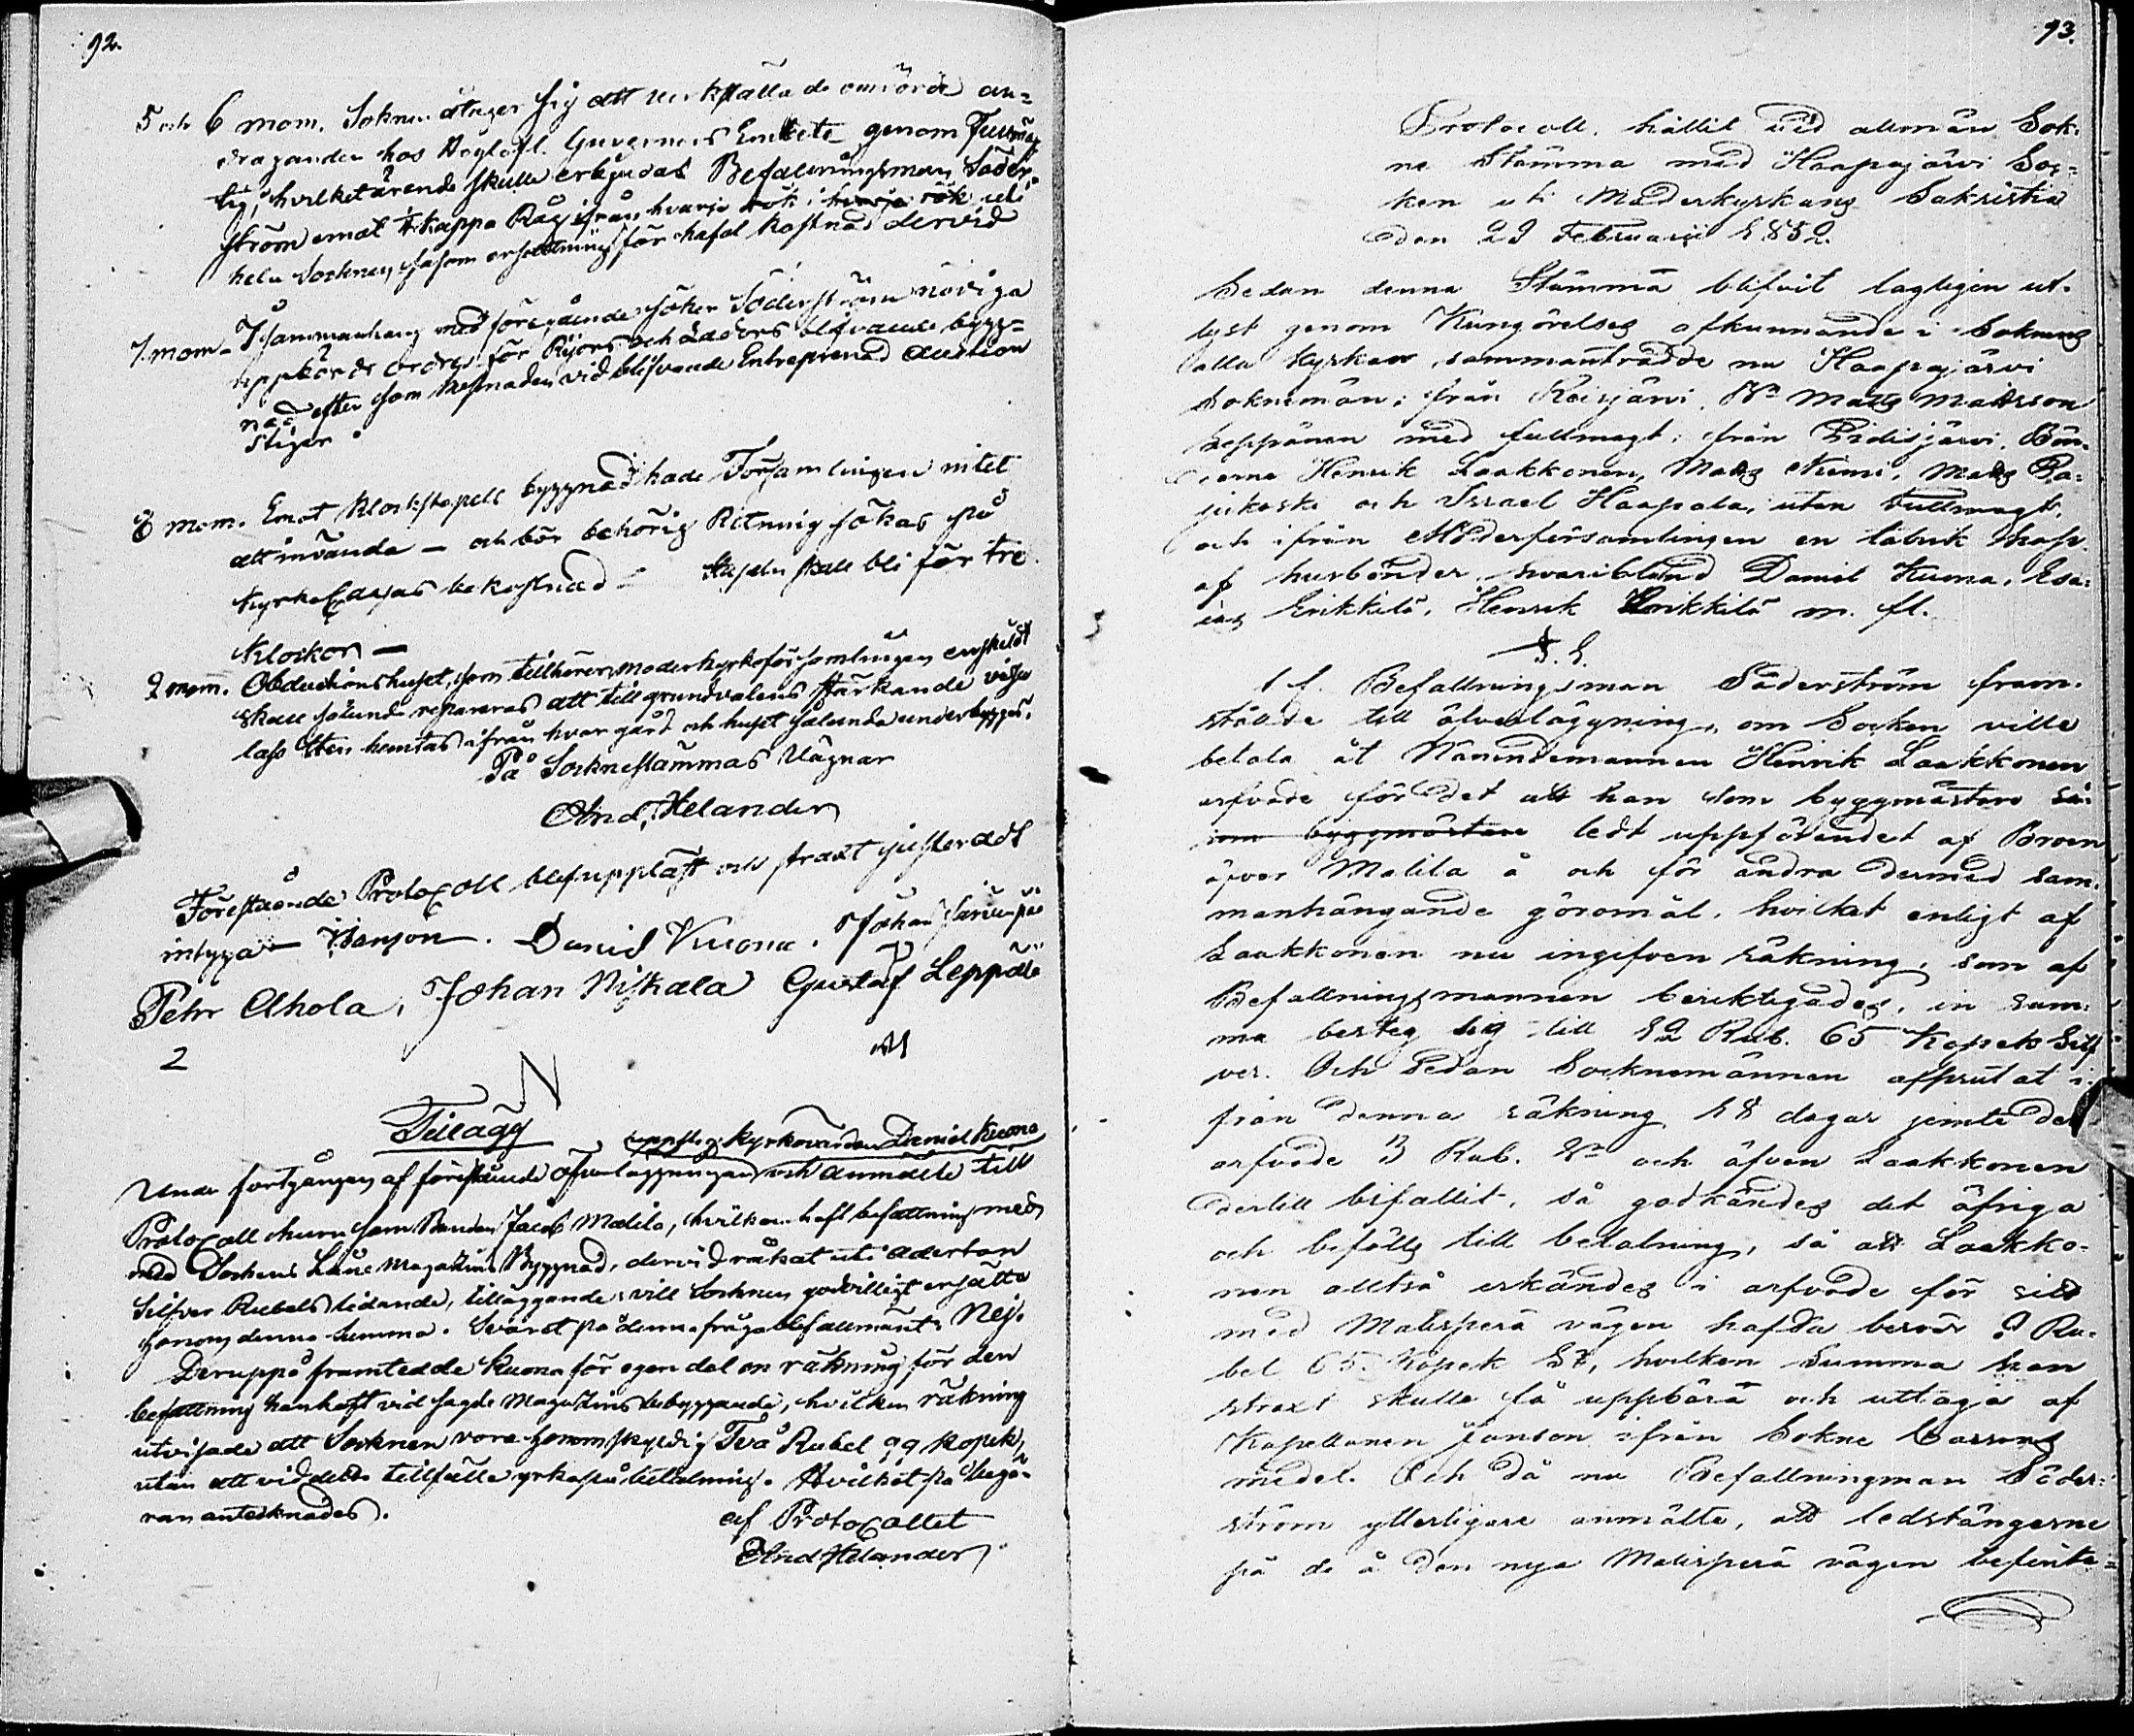 92.
5 och 6 mom. Soknen åtager sig att verkställa de omrörde an=
draganden hos Höglofl. Guverneurs Embete genom Fullmäg
tig, hvilket ärende skulle erbjudas Befallningsman Söder,
ström emot 1 kappa Råg ifrån hvarje rök uti
hela Socknen, såsom ersättning för hafd kostnad dervid
7 mom. I sammanhang med föregående söker Söderström nödiga
uppbörds ordres för Rijors och Ladors blifvande bygg=
nad, efter som kostnaden vid blifvande Entreprenad Auction
stiger
8 mom. Emot Klockstapels byggnad hade Församlingen intet
att invända – och bör behörig Ritning sökas på
Kyrko Cassas bekostnad – Stapeln skall bli för tre
Klockor –
9 mom. Obductionshuset, som tillhörer moderkyrkoförsamlingen enskildt
skall sålunda repareras att till grundvalens stärkande visse
lass sten hemtas ifrån hvar gård och huset sålunda underbygges.
På Socknestämmas Vägnar
And. Helander
Förestående Protocoll blef uppläst och straxt justeradt
intyga – Janson. Daniel Kuona. Johan
Petter Ahola, Johan Niskala Gustaf Leppälä
2
N
Tillägg
uppsteg Kyrkovärden Daniel Kuona
Under fortgången af förestående öfverläggningar och anmälte till
Protocoll huru som Bonden Jacob Malila, hvilken haft befattning med
med Sockens Låne Magazins Byggnad, dervid råkat uti aderton
Silfver Rubels lidande, tilläggande: vill Socknen godvilligt ersätta
honom denna Summa. Svaret på denna fråga blef allmänt: Nej.
Deruppå framtedde Kuona för egen del en räkning för den
befattning han haft vid sagde Magazins bebyggande, hvilken räkning
utvisade att Socknen vore honom skyldig Två Rubel 99 kopek,
utan att vid detta tillfälle yrka på betalning. Hvilket på begä-
ran antecknades.
af Protocollet
And Helander
93.
Protocoll, hållit vid allmän Sok-
ne Stämma med Haapajärvi Soc=
ken uti Moderkyrkans Sakristia
den 29 Februarii 1852.
Sedan denna Stämma blifvit lagligen ut-
lyst genom Kungörelses afkunnande i Soknens
alla Kyrkor, sammanträdde nu Haapajärvi
Soknemän; från Reisjärvi, Matts Mattsson
Leppänen med fullmagt; från Pidisjärvi, Bön-
derne Henrik Laakkonen, Matts Niemi, Matts Pa=
jukoski och Israel Haapala, utan fullmagt,
och ifrån Moderförsamlingen en talrik hop
af husbönder, hvaribland Daniel Kuona, Esa=
ias Erikkilä, Henrik Erikkilä m. fl.
§. 1.
t. f. Befallningsman Söderström fram-
stälde till öfverläggning, om Socken ville
betala åt Nämndemannen Henrik Laakkonen
arfvode för det att han som byggmästare så-
som byggmästare ledt uppförandet af Broen
öfver Malila å och för andra dermed sam-
manhängande göromål, hvilket enligt af
Laakkonen nu ingifven räkning, som af
Befallningsmannen beriktigades, in sum-
ma besteg sig till 12 Rub. 65 Kopek Silf
ver. Och sedan Socknemännen afprutat i-
från denna räkning 18 dagar jemte der
arfvode 3 Rub. och äfven Laakkonen
dertill bifallit, så godkändes det öfriga
och befalls till betalning, så att Laakko-
nen alltså erkändes i arfvode för sitt
med Malisperä vägen hafda besvär 9 Ru-
bel 65 Kopek Sr, hvilken Summa han
straxt skulle få uppbära och uttaga af
Kapellanen Janson ifrån Sokne Cassans
medel. Och då nu Befallningman Söder=
ström ytterligare anmälte, att ledstängerne
på de å den nya Malisperä vägen befinte=